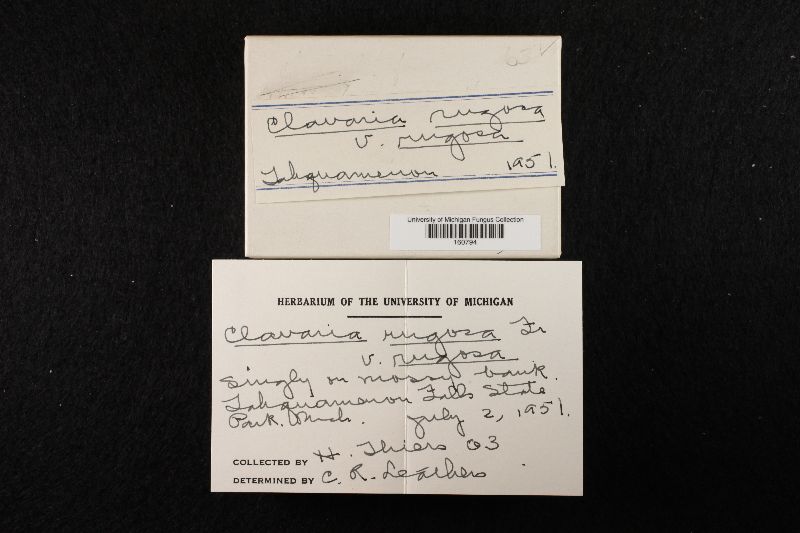 Clavaria rugosa
v. rugosa
Tahquamenon 1951.
University of Michigan Fungus Collection
160794
HERBARIUM OF THE UNIVERSITY OF MICHIGAN
Clavaria rugosa Fr
v. rugosa
Singly on mossy bank.
Tahquamenon Falls State
Park. Mich. July 2, 1951.
COLLECTED BY H. Thiers 03
DETERMINED BY C. R. Leathers